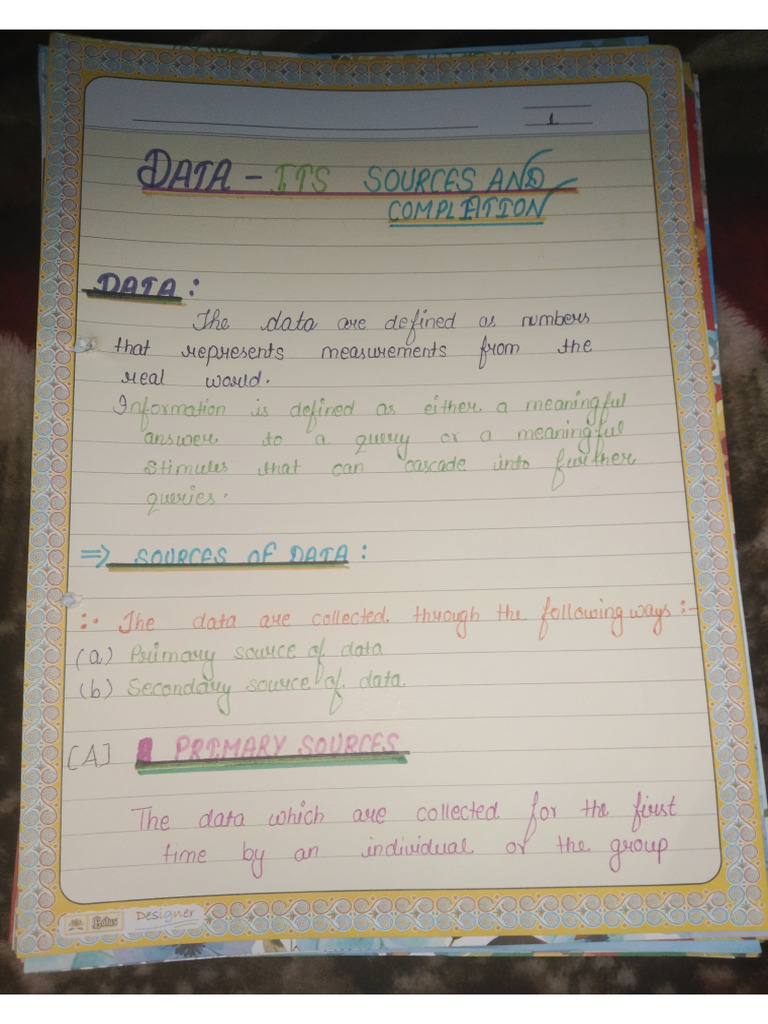 1
DATA - ITS SOURCES AND
COMPLIATION
DATA :
The data are defined as numbers
that represents measurements from the
real world.
Information is defined as either a meaningful
answere to a query or a meaningful
Stimules that can cascade into further
queries.
⇒ SOURCES OF DATA :
:· The data are collected through the following ways :-
(a) Primary source of data
(b) Secondary source of data.
[A] PRIMARY SOURCES
The data which are collected for the first
time by an individual or the group
Lotus Designer